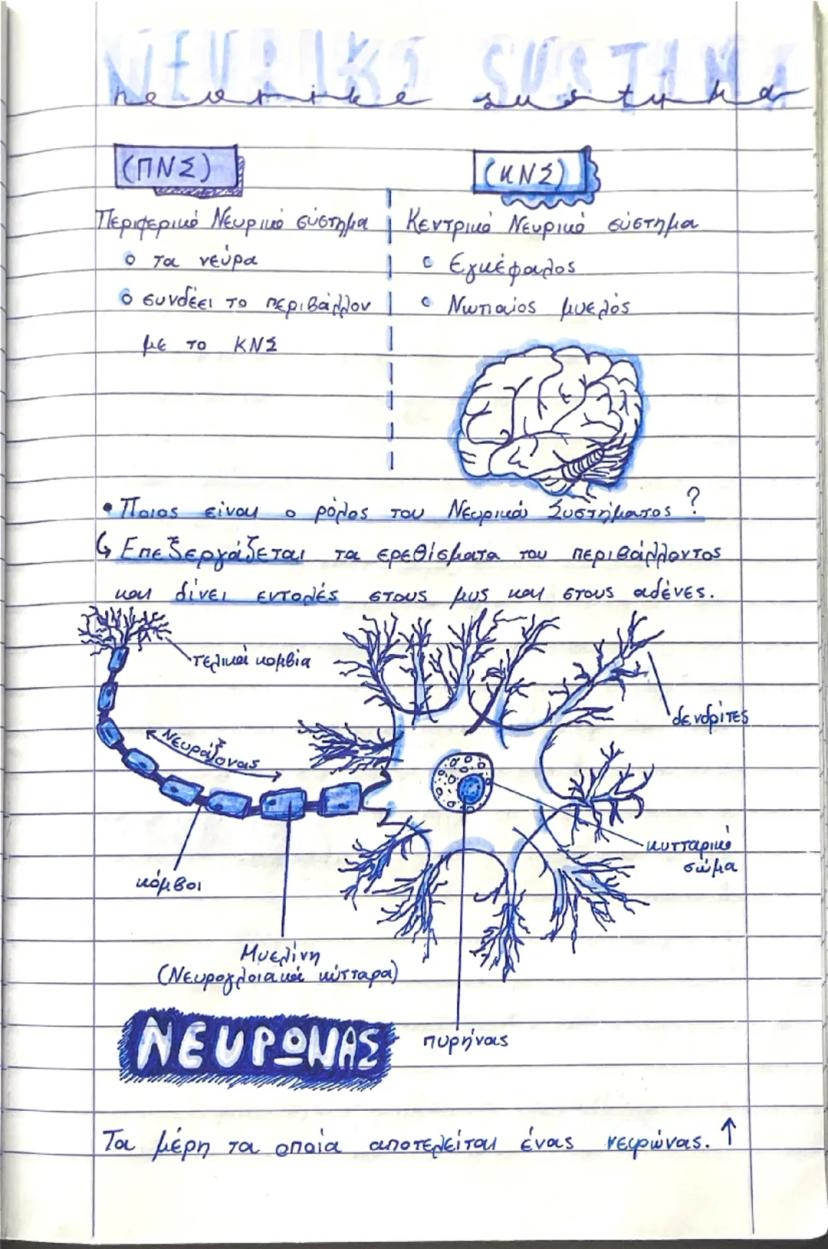 NEVRIKO SUSTIMA
nevriko sustyma
(ΠΝΣ)
Περιφερικό Νευρικό σύστημα
τα νεύρα
συνδέει το περιβάλλον
με το ΚΝΣ
(ΚΝΣ)
Κεντρικό Νευρικό σύστημα
Εγκέφαλος
Νωτιαίος μυελός
• Ποιος είναι ο ρόλος του Νευρικού Συστήματος?
↳ Επεξεργάζεται τα ερεθίσματα του περιβάλλοντος
και δίνει εντολές στους μυς και στους αδένες.
τελικά κομβία
δενδρίτες
Νευράξονας
κυτταρικό
σώμα
κόμβοι
Μυελίνη
(Νευρογλοιακά κύτταρα)
πυρήνας
ΝΕΥΡΩΝΑΣ
Τα μέρη τα οποία αποτελείται ένας νευρώνας. ↑